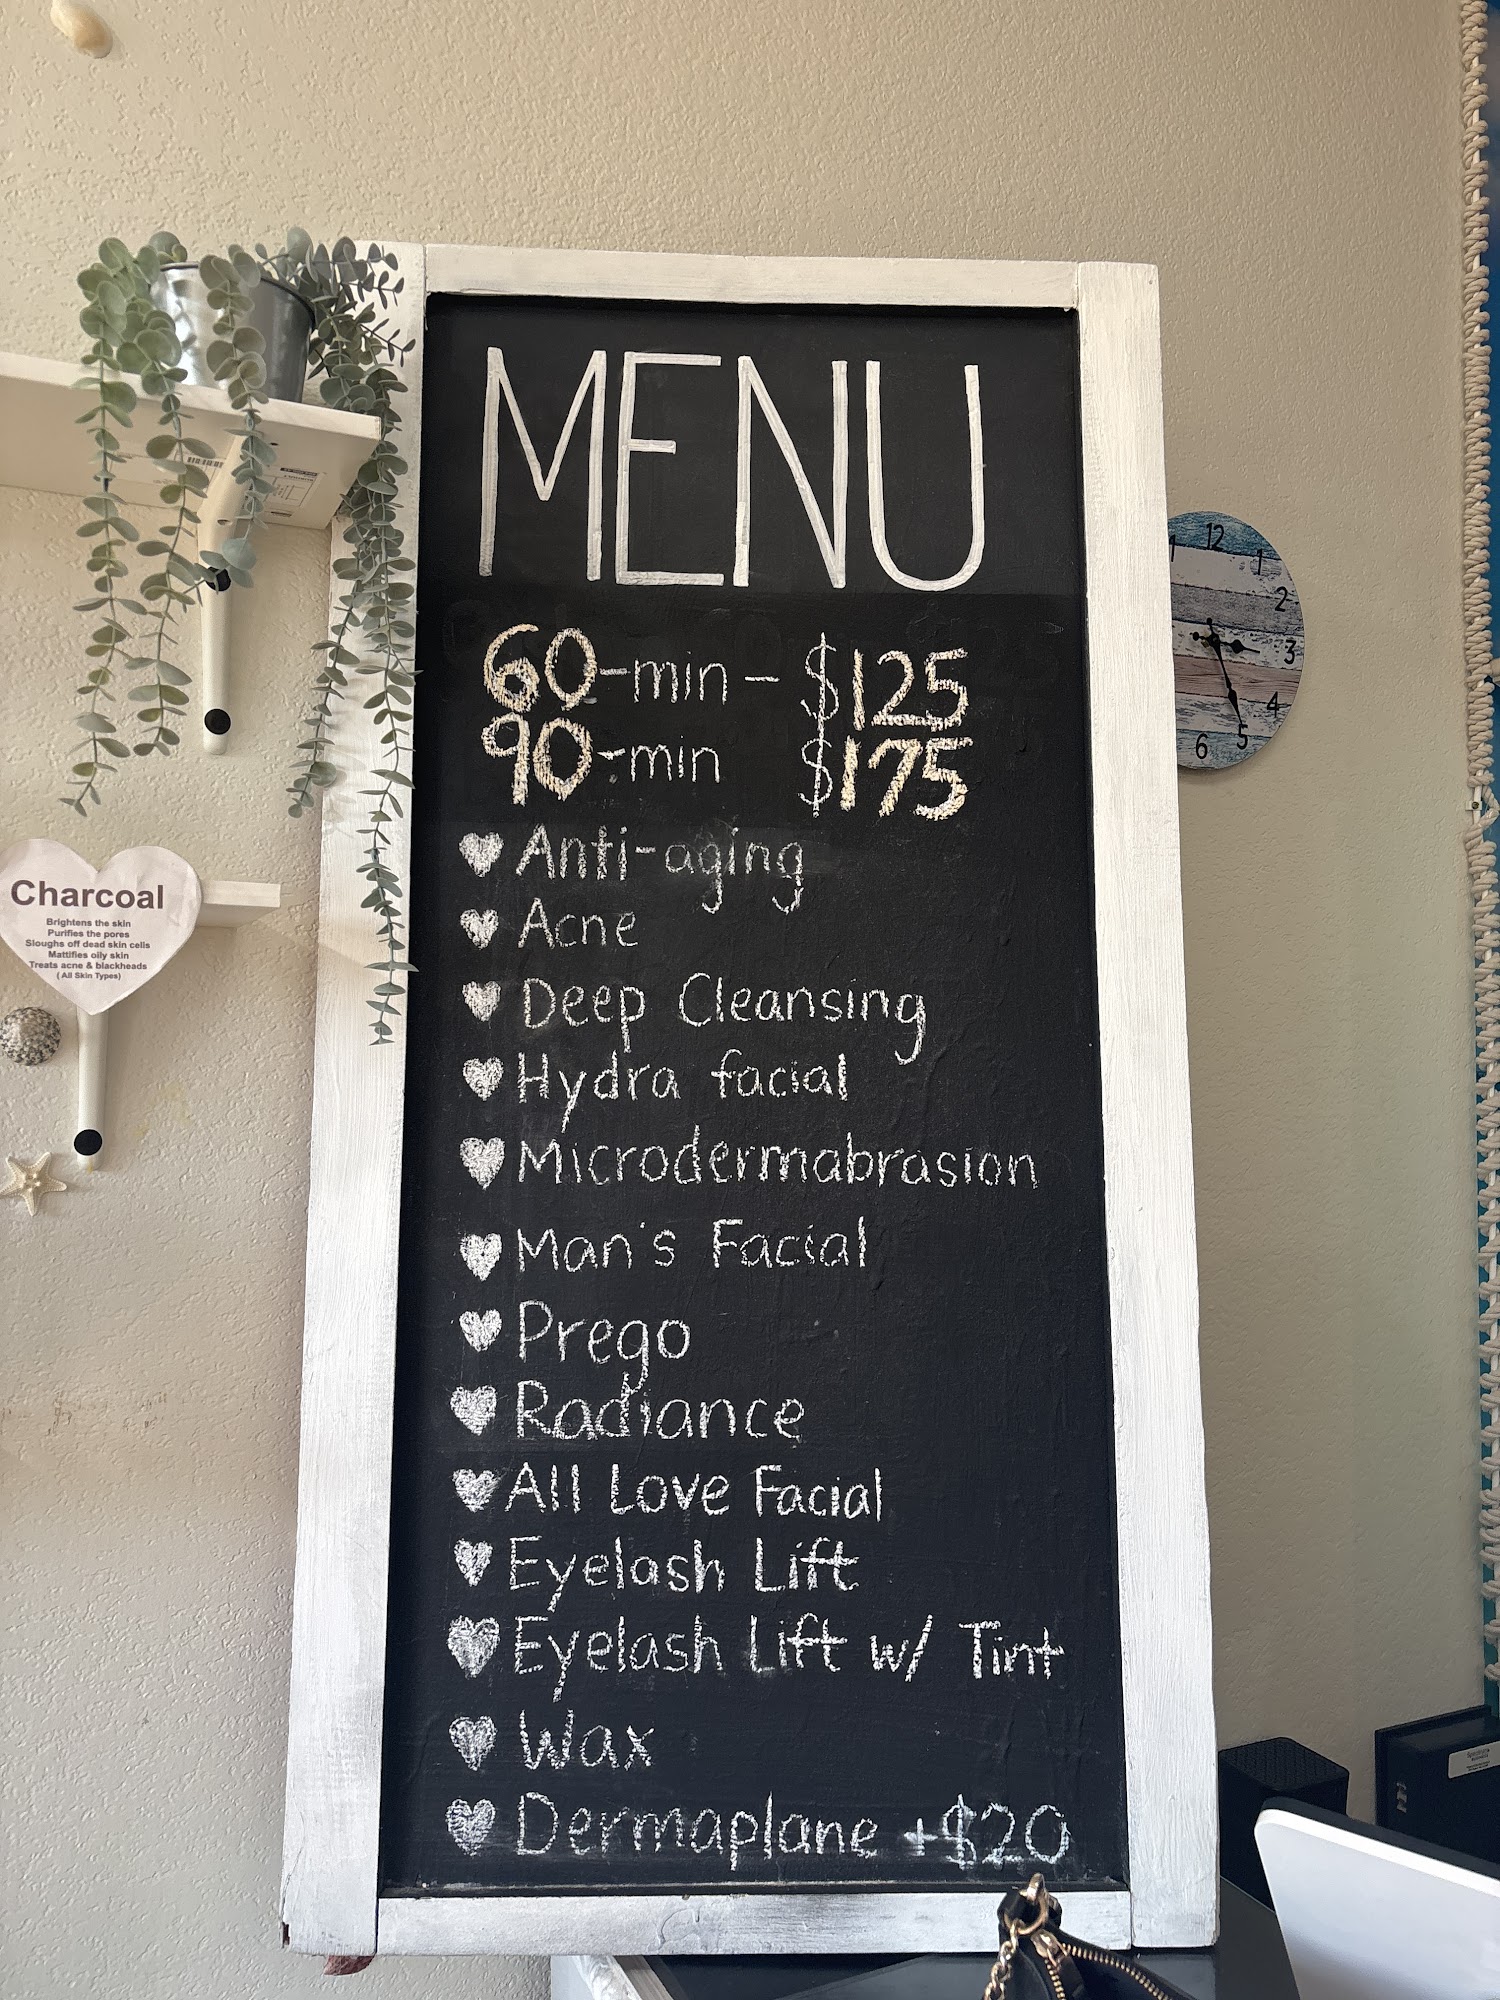 MENU
60-min - $125
90-min $175
Anti-aging
Acne
Deep Cleansing
Hydra facial
Microdermabrasion
Man's Facial
Prego
Radiance
All Love Facial
Eyelash Lift
Eyelash Lift w/ Tint
Wax
Dermaplane +$20
Charcoal
Brightens the skin
Purifies the pores
Sloughs off dead skin cells
Mattifies oily skin
Treats acne & blackheads
(All Skin Types)
12
1
1
2
3
4
5
6